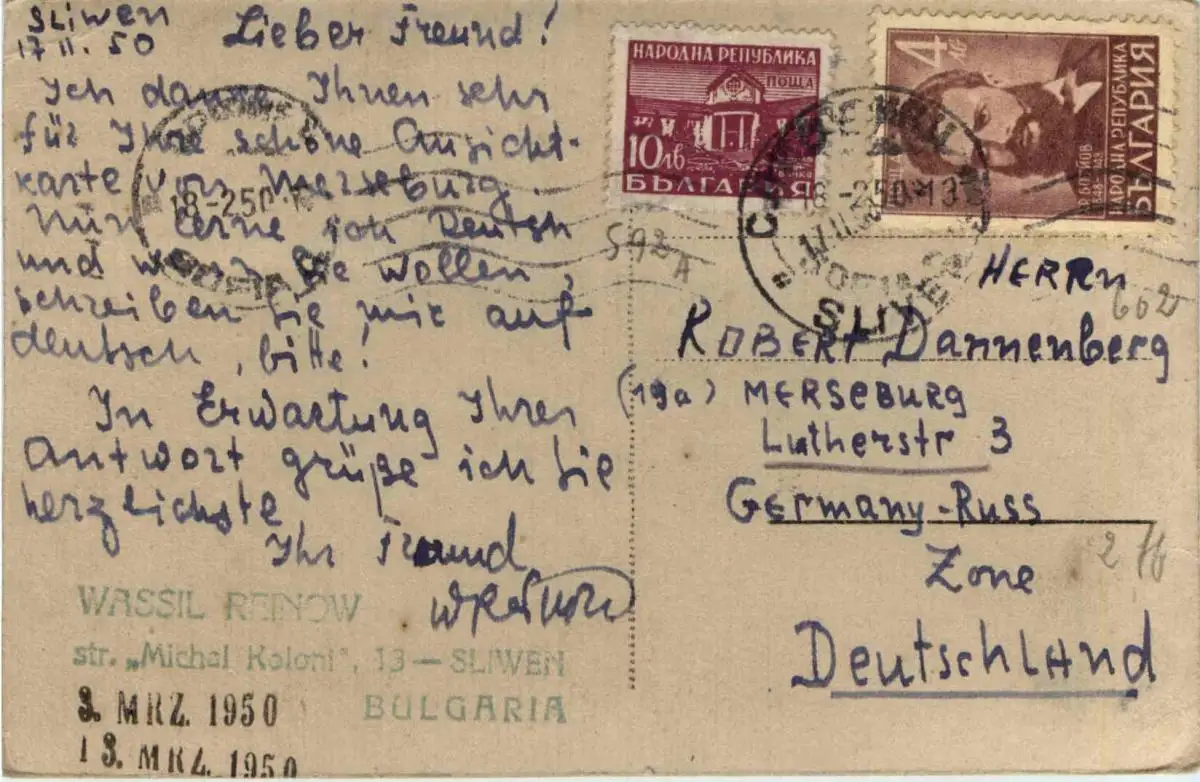 SLIWEN
17 II. 50
Lieber Freund!
Ich danke Ihnen sehr
für Ihre schöne Ansicht-
karte von Merseburg.
Nun lerne ich Deutsch
und wenn Sie wollen,
schreiben Sie mir auf
deutsch, bitte!
In Erwartung Ihrer
Antwort grüße ich Sie
herzlichste
Ihr Freund
WASSIL REINOW
str. „Michal Koloni", 13 — SLIWEN
BULGARIA
3. MRZ. 1950
13. MRZ. 1950
НАРОДНА РЕПУБЛИКА
ПОЩА
10 лв
БЪЛГАРИЯ
4 лв
ХР. БОТЙОВ
1848-1948
НАРОДНА РЕПУБЛИКА
БЪЛГАРИЯ
18-250
18-250-13
17 II
SLIVEN
592 A
602
HERRN
ROBERT Dannenberg
(19a) MERSEBURG
Lutherstr 3
Germany-Russ
Zone
Deutschland